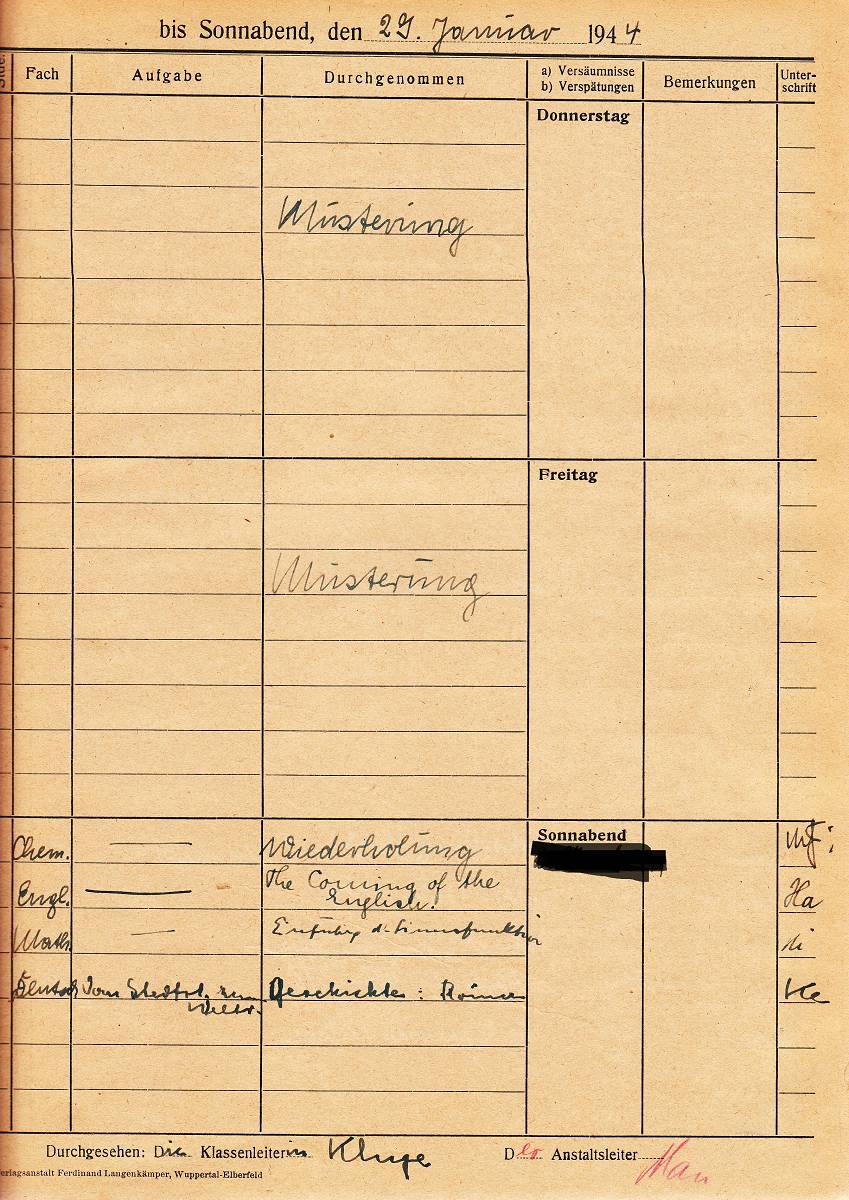 bis Sonnabend, den 29. Januar 1944
Fach Aufgabe Durchgenommen a) Versäumnisse b) Verspätungen Bemerkungen Unter-schrift
Donnerstag
Musterung
Freitag
Musterung
Sonnabend
Chem. — Wiederholung
Engl. — The Coming of the
English. Ha
Math. — Einführg d. Sinusfunktion
Deutsch Vom Stadtst. zum Geschichte: Römer
Weltr.
Durchgesehen: Die Klassenleiterin Kluge Der Anstaltsleiter
Verlagsanstalt Ferdinand Langenkämper, Wuppertal-Elberfeld